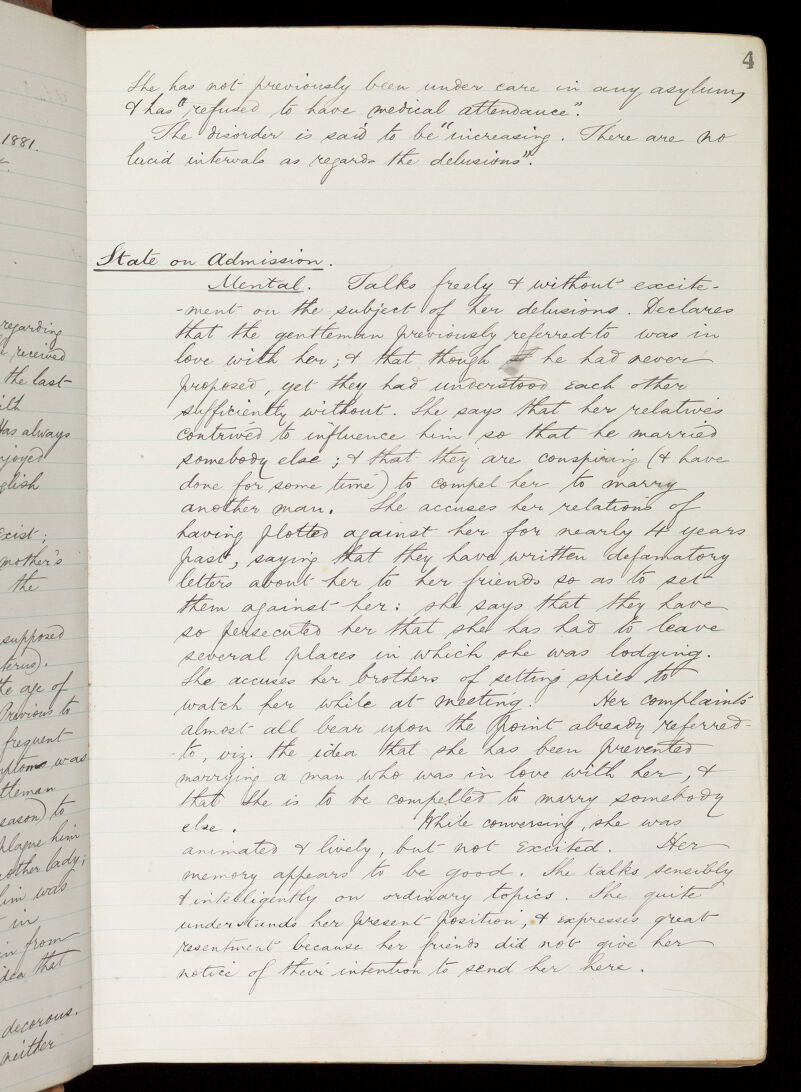 4
She has not previously been under care in any asylum,
& has "refused to have medical attendance".
The disorder is said to be "increasing. There are no
lucid intervals as regards the delusions".
State on Admission.
Mental. Talks freely & without excite-
-ment on the subject of her delusions. Declares
that the gentleman previously referred to was in
love with her; & that though he had never
proposed, yet they had understood each other
sufficiently without. She says that her relatives
contrived to influence him so that he married
somebody else; & that they are conspiring (& have
done for some time) to compel her to marry
another man. She accuses her relations of
having plotted against her for nearly 4 years
past, saying that they have written defamatory
letters about her to her friends so as to set
them against her: she says that they have
so persecuted her that she has had to leave
several places in which she was lodging.
She accuses her brothers of setting spies to
watch her while at meeting. Her complaints
almost all bear upon the point already referred-
-to, viz. the idea that she has been prevented
marrying a man who was in love with her, &
that she is to be compelled to marry somebody
else. While conversing, she was
animated & lively, but not excited. Her
memory appears to be good. She talks sensibly
& intelligently on ordinary topics. She quite
understands her present position, & expresses great
resentment because her friends did not give her
notice of their intention to send her here.
1881.
regarding
received
the last
Has always
exist;
mother's
the
supposed
the age of
Previous to
frequent
was
to
plague him
other lady;
him was
in
in from
idea that
decorous.
neither